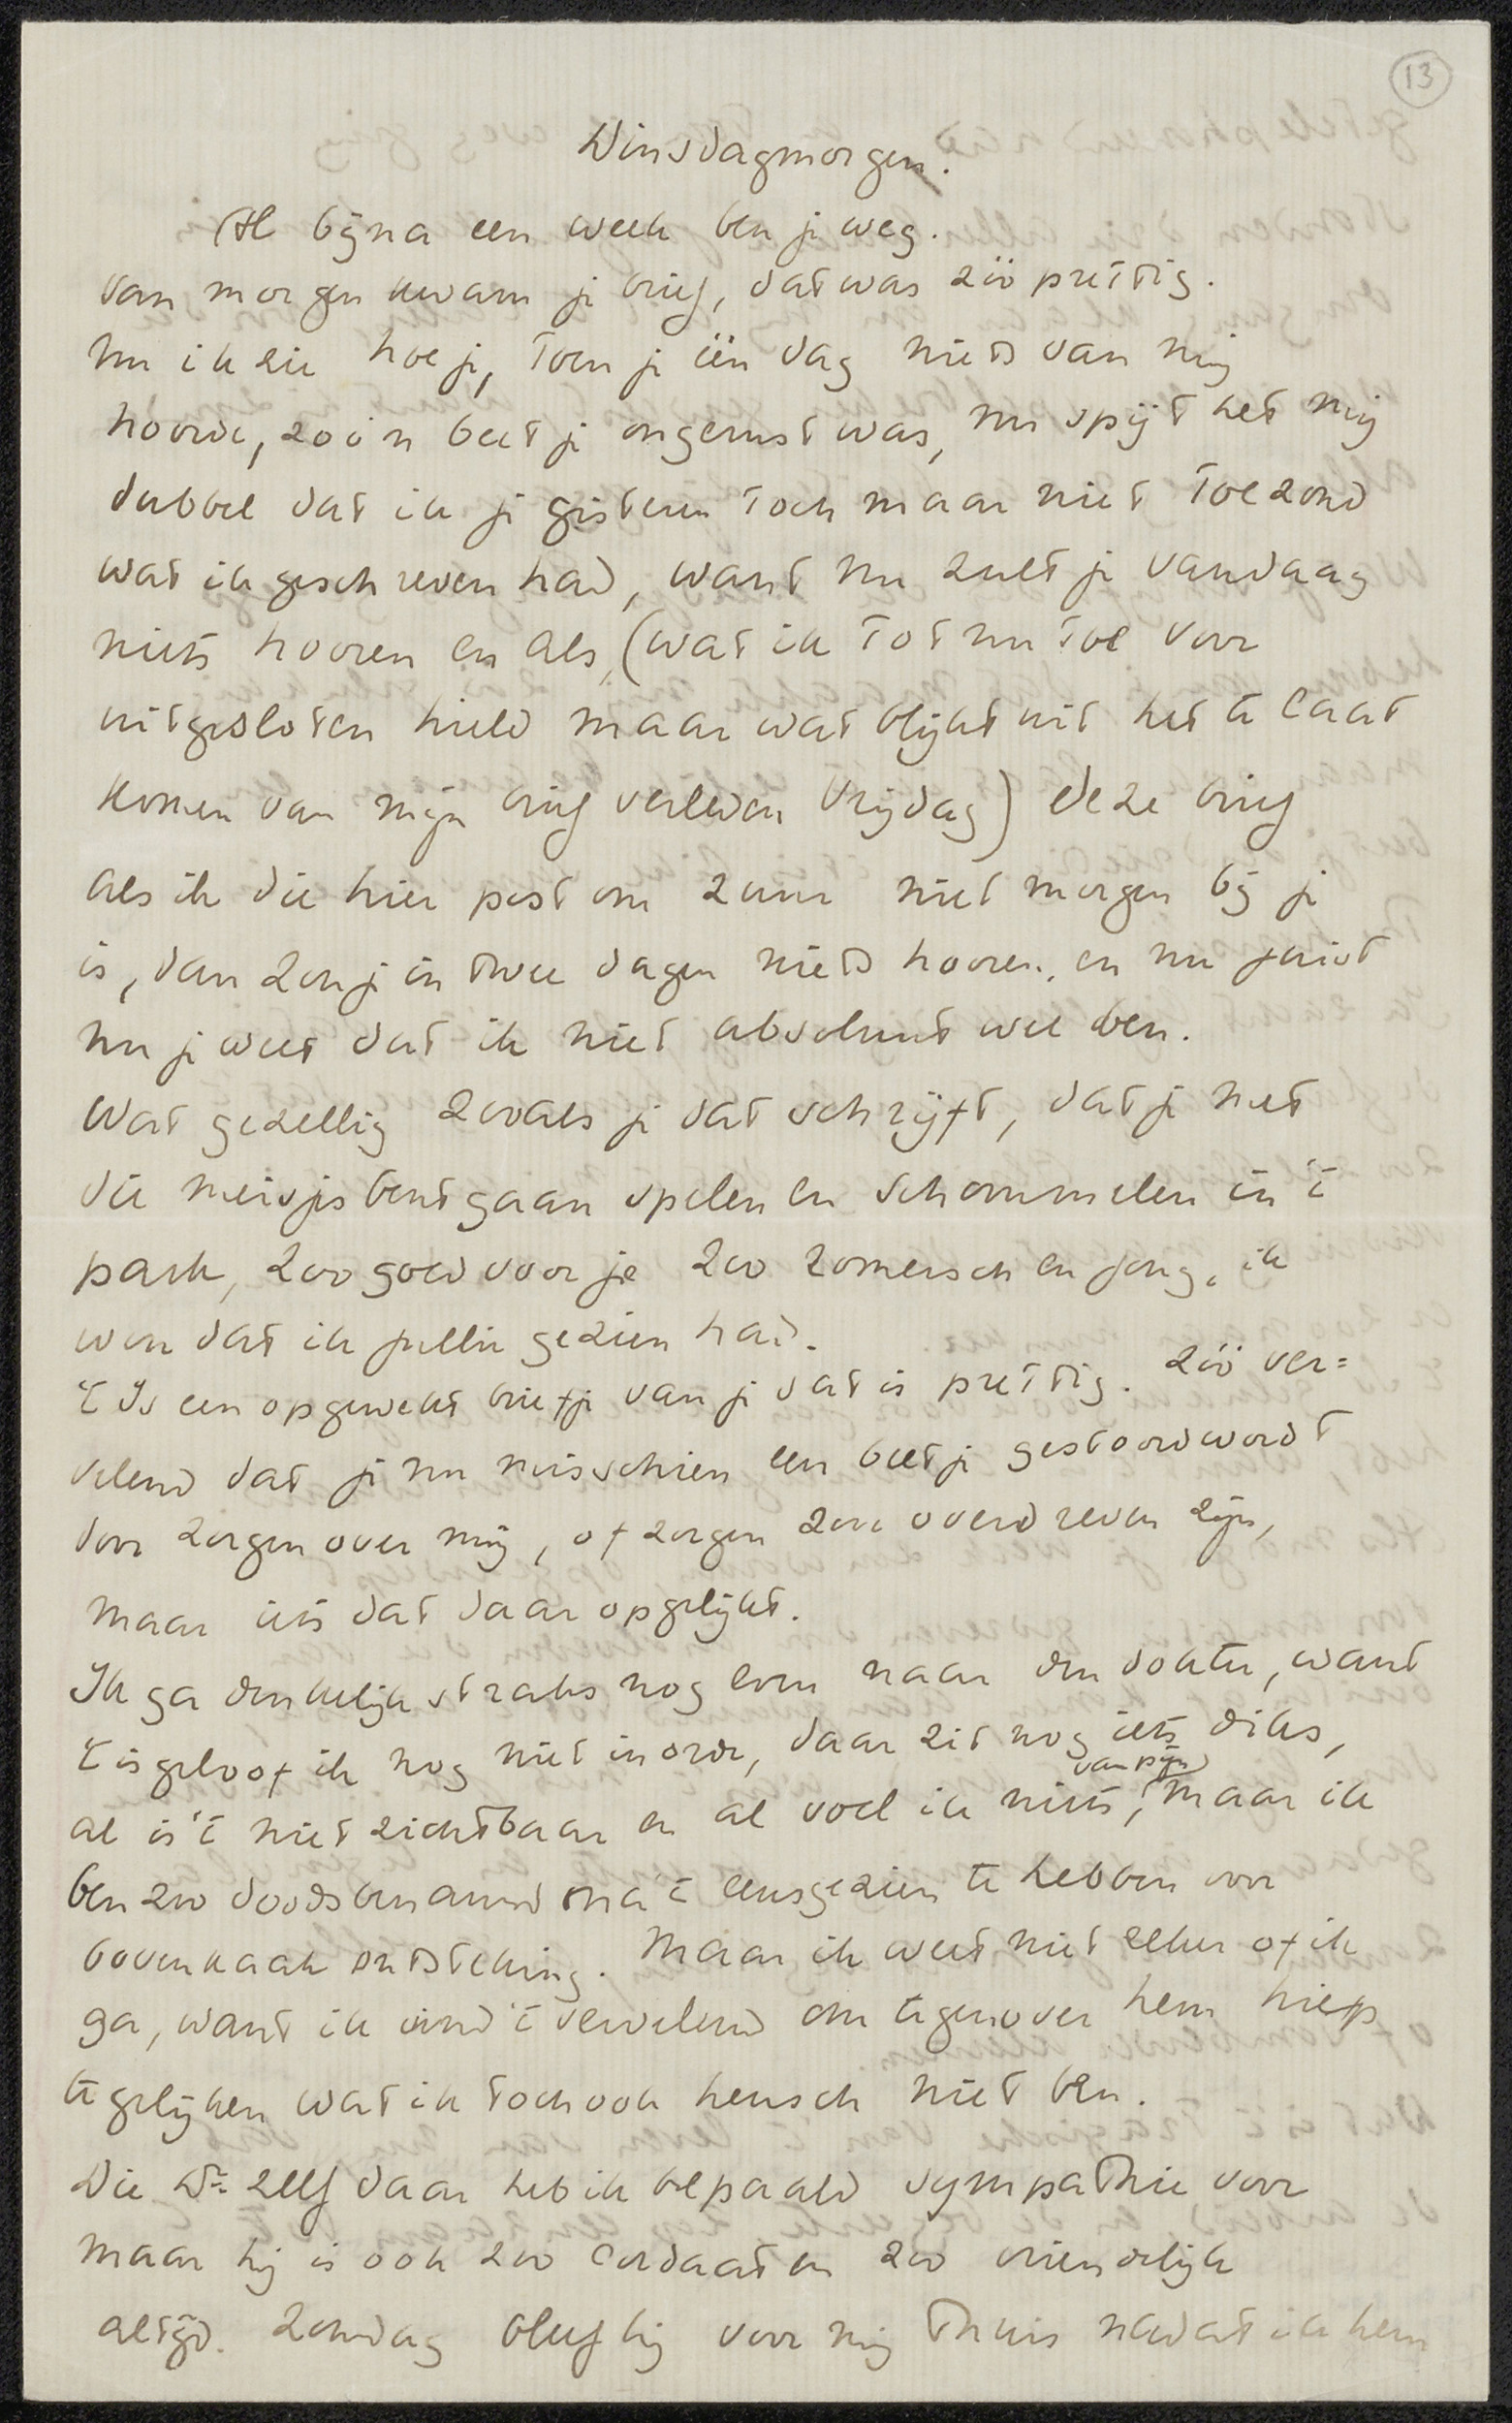 13
Dinsdagmorgen.
Al bijna een week ben je weg.
van morgen kwam je brief, dat was zóó prettig.
nu ik zie hoe je, toen je één dag niets van mij
hoorde, zoo'n beetje ongerust was, nu spijt het mij
dubbel dat ik je gisteren toch maar niet toezond
wat ik geschreven had, want nu zult je vandaag
niets hooren en als, (wat ik tot nu toe voor
uitgesloten hield maar wat blijkt uit het te laat
komen van mijn brief verleden Vrijdag) deze brief
als ik die hier post om 2 uur niet morgen bij je
is, dan zou je in twee dagen niets hooren, en nu juist
nu je weet dat ik niet absoluut wel ben.
Wat gezellig zooals je dat schrijft, dat je met
die meisjes bent gaan spelen en schommelen in 't
park, zoo goed voor je zoo zomersch en jong, ik
wou dat ik jullie gezien had.
't Is een opgewekt briefje van je dat is prettig. zóó ver=
velend dat je nu misschien een beetje gestoord wordt
door zorgen over mij, of zorgen zou overdreven zijn,
maar iets dat daar op gelijkt.
Ik ga denkelijk straks nog even naar den dokter, want
't is geloof ik nog niet in orde, daar zit nog iets diks,
al is 't niet zichtbaar en al voel ik niets van pijn, maar ik
ben zoo doodsbenauwd na 't eens gezien te hebben voor
bovenkaak ontsteking. Maar ik weet niet zeker of ik
ga, want ik vind 't vervelend om tegenover hem hiep
te gelijken wat ik toch ook heusch niet ben.
Die Dr zelf daar heb ik bepaald sympathie voor
maar hij is ook zoo cordaat en zoo vriendelijk
altijd. Zondag bleef hij voor mij thuis nadat ik hem